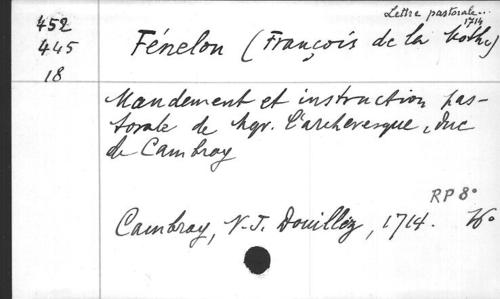 Lettre pastorale...
1714
452
445
18
Fénelon (François de la Mothe)
Mandement et instruction pas-
torale de Mgr. l'archevesque, duc
de Cambray
RP 8°
Cambray, N.-J. Douilliez, 1714.